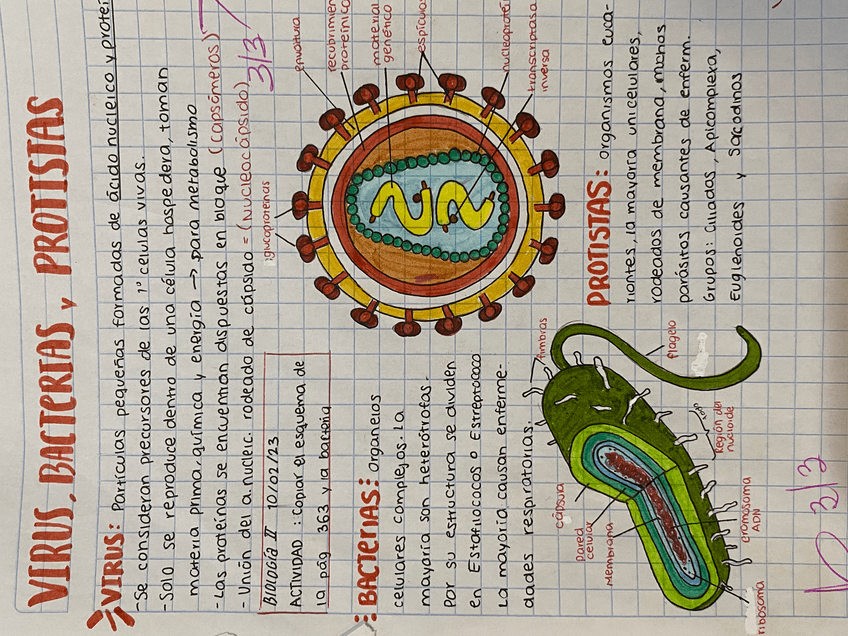 VIRUS, BACTERIAS y PROTISTAS
VIRUS: Partículas pequeñas formadas de ácido nucleico y protei
- Se consideran precursores de las 1° celulas vivas.
- Solo se reproduce dentro de una célula hospedera, toman
materia prima, química y energía → para metabolismo
- Las proteínas se encuentran dispuestas en bloque (capsómeros)
- Unión del a. nucleic. rodeado de cápsido = (Nucleocápsido)
3/3
BIOLOGÍA II 10/02/23
ACTIVIDAD: Copiar el esquema de
la pág 363 y la bacteria
glucoproteínas
envoltura
recubrimien
proteínico
material
genético
espículas
nucleoproteí
transcriptasa
inversa
BACTERIAS: Organelos
celulares complejos. La
mayoría son heterótrofas.
Por su estructura se dividen
en Estafilococos o Estreptococo
La mayoría causan enferme-
dades respiratorias.
PROTISTAS: Organismos euca-
riontes, la mayoría unicelulares,
rodeados de membrana, muchos
parásitos causantes de enferm.
Grupos: Ciliados, Apicomplexa,
Euglenoides y Sarcodinos
fimbrias
flagelo
cápsula
Pared
celular
Membrana
pilo
Región del
nucloide
cromosoma
ADN
ribosoma
3/3